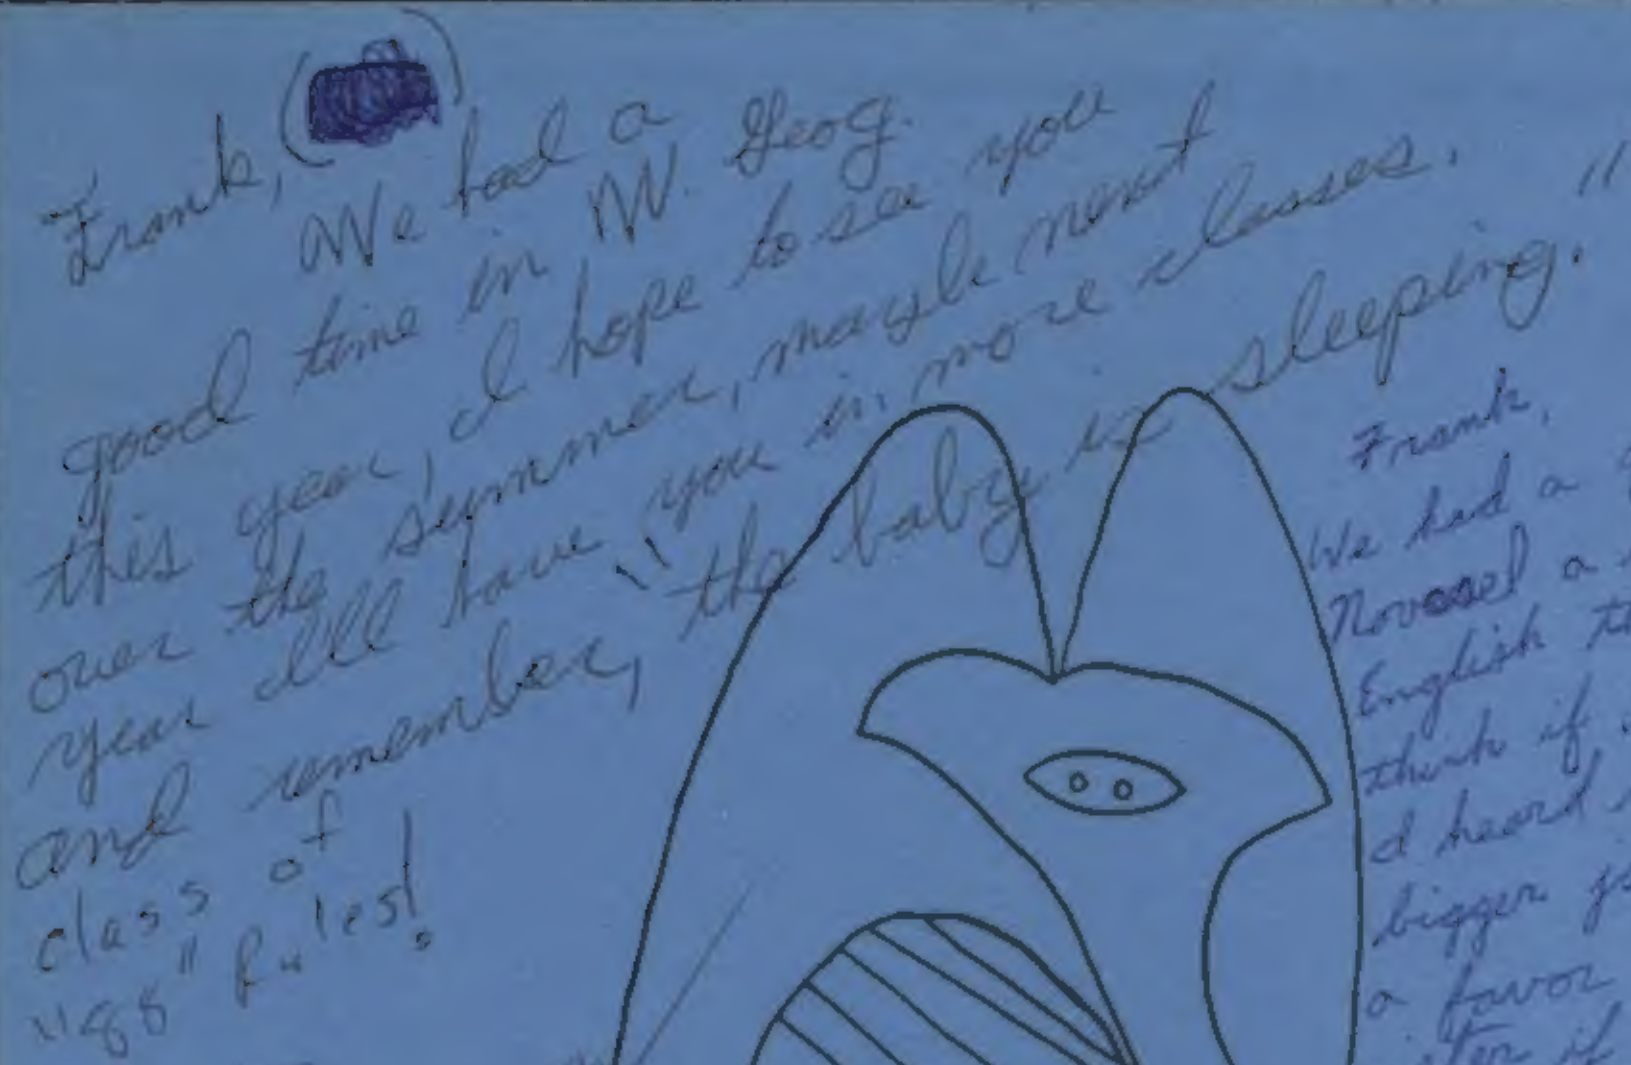 Frank, (
We had a
good time in W. Geog.
this year, I hope to see you
over the summer, maybe next
year I'll have you in more classes.
and remember, "the baby is sleeping."
class of
"88" Rules!
Frank,
We had a
a
English
think if
I heard
bigger
a favor
if